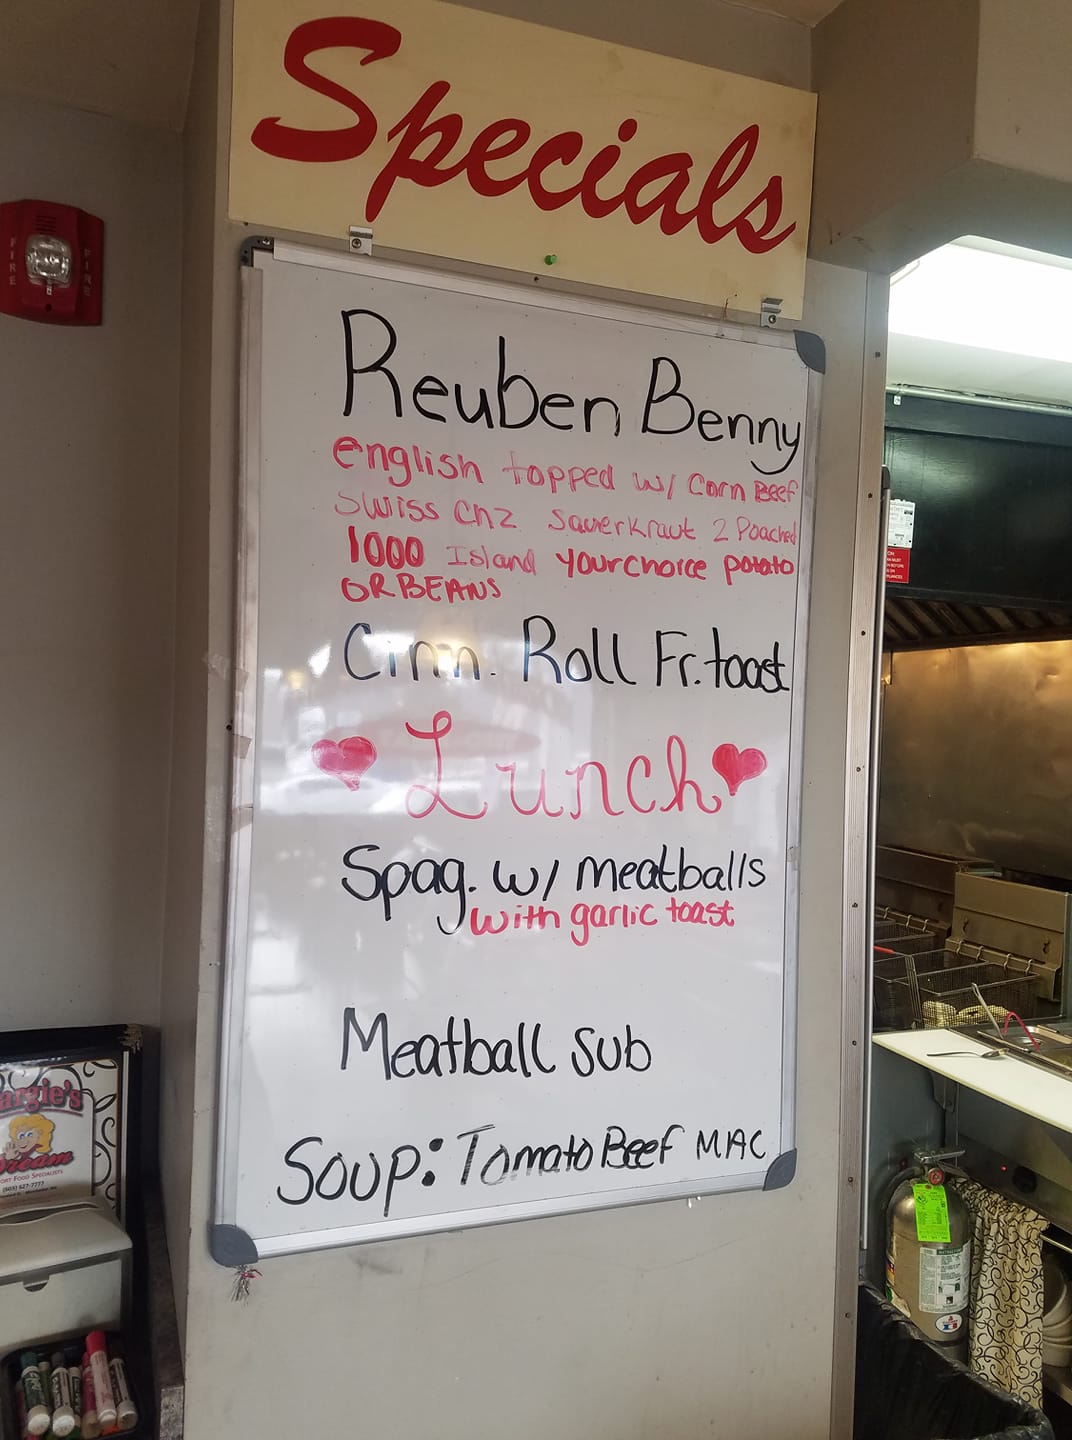 Specials
FIRE
FIRE
Reuben Benny
english topped w/ Corn Beef
Swiss chz Sauerkraut 2 Poached
1000 Island your choice potato
OR BEANS
Cinn. Roll Fr. toast
Lunch
Spag. w/ meatballs
with garlic toast
Meatball Sub
Soup: Tomato Beef MAC
argie's
Dream
ORT FOOD SPECIALISTS
(603) 627-7777